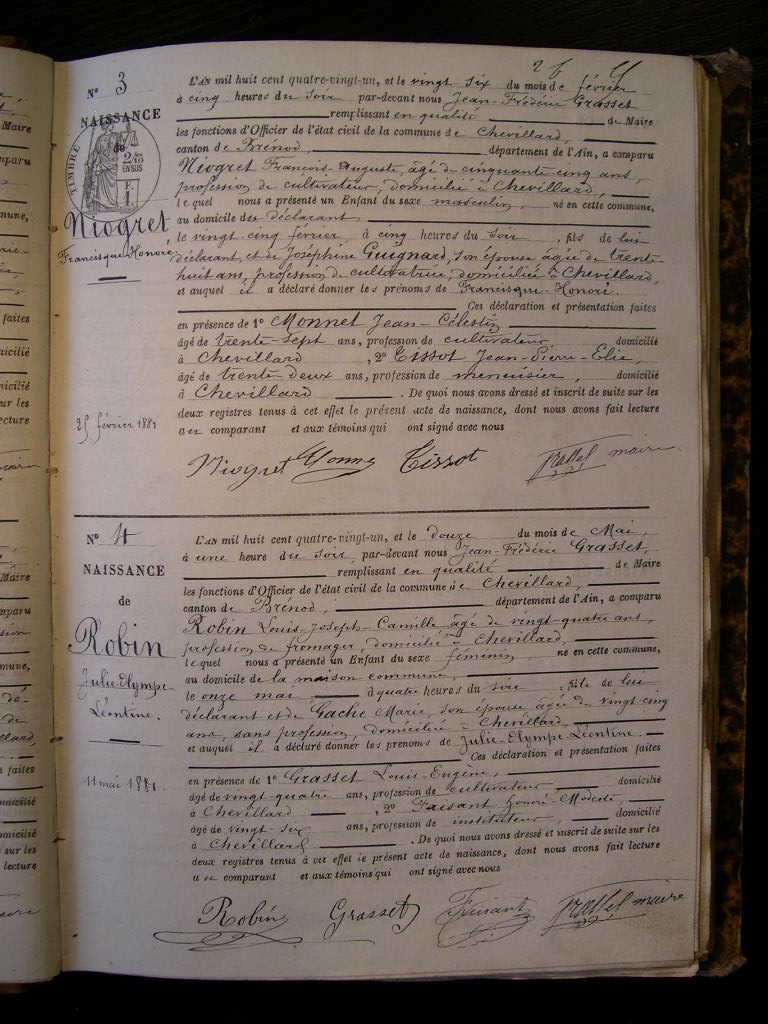 N° 3
NAISSANCE
de
TIMBRE
2/10
EN SUS
F.
1.
Niogret
Francisque Honoré
25 février 1881
L'AN mil huit cent quatre-vingt-un, et le vingt-six du mois de février
à cinq heures du soir par-devant nous Jean-Frédéric Grasset
remplissant en qualité de Maire
les fonctions d'Officier de l'état civil de la commune de Chevillard,
canton de Brénod, département de l'Ain, a comparu
Niogret François-Auguste, âgé de cinquante-cinq ans,
profession de cultivateur, domicilié à Chevillard,
lequel nous a présenté un Enfant du sexe masculin, né en cette commune,
au domicile du déclarant
le vingt-cinq février à cinq heures du soir, fils de lui
déclarant et de Joséphine Guignard, son épouse âgée de trente-
huit ans, profession de cultivatrice, domiciliée à Chevillard,
et auquel il a déclaré donner les prénoms de Francisque-Honoré.
Ces déclaration et présentation faites
en présence de 1° Monnet Jean-Célestin
âgé de trente-sept ans, profession de cultivateur, domicilié
à Chevillard, 2° Tissot Jean-Pierre-Elie,
âgé de trente-deux ans, profession de menuisier, domicilié
à Chevillard. De quoi nous avons dressé et inscrit de suite sur les
deux registres tenus à cet effet le présent acte de naissance, dont nous avons fait lecture
au comparant et aux témoins qui ont signé avec nous
Niogret Monnet Tissot Grasset maire
N° 4
NAISSANCE
de
Robin
Julie-Olympe-
Léontine.
11 mai 1881.
L'AN mil huit cent quatre-vingt-un, et le douze du mois de Mai,
à une heure du soir, par-devant nous Jean-Frédéric Grasset,
remplissant en qualité de Maire
les fonctions d'Officier de l'état civil de la commune de Chevillard,
canton de Brénod, département de l'Ain, a comparu
Robin Louis-Joseph-Camille âgé de vingt-quatre ans,
profession de fromager, domicilié à Chevillard,
lequel nous a présenté un Enfant du sexe féminin, né en cette commune,
au domicile de la maison commune,
le onze mai à quatre heures du soir, fille de lui
déclarant et de Gache Marie, son épouse âgée de vingt-cinq
ans, sans profession, domiciliée à Chevillard,
et auquel il a déclaré donner les prénoms de Julie-Olympe Léontine.
Ces déclaration et présentation faites
en présence de 1° Grasset Louis-Eugène,
âgé de vingt-quatre ans, profession de cultivateur domicilié
à Chevillard, 2° Faisant Honoré-Modeste,
âgé de vingt-six ans, profession de instituteur, domicilié
à Chevillard. De quoi nous avons dressé et inscrit de suite sur les
deux registres tenus à cet effet le présent acte de naissance, dont nous avons fait lecture
au comparant et aux témoins qui ont signé avec nous
Robin Grasset Faisant Grasset maire